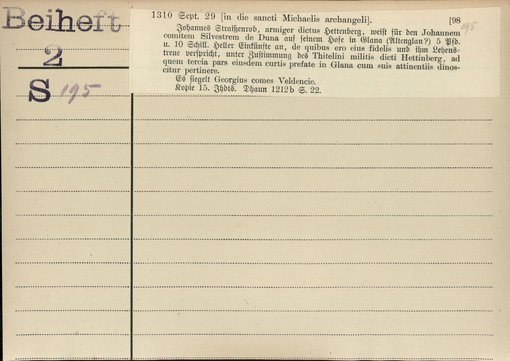 Beiheft
2
S 195
1310 Sept. 29 [in die sancti Michaelis archangeli]. [98
195
Johannes Straßenrob, armiger dictus Hettenberg, weist für den Johannem
comitem Silvestrem de Duna auf seinem Hofe in Glana (Altenglan?) 5 Pfd.
u. 10 Schill. Heller Einkünfte an, de quibus ero eius fidelis und ihm Lehens-
treue verspricht, unter Zustimmung des Thitelini militis dicti Hettinberg, ad
quem tercia pars eiusdem curtis prefate in Glana cum suis attinentiis dinos-
citur pertinere.
Es siegelt Georgius comes Veldencie.
Kopie 15. Jhdts. Dhaun 1212b S. 22.